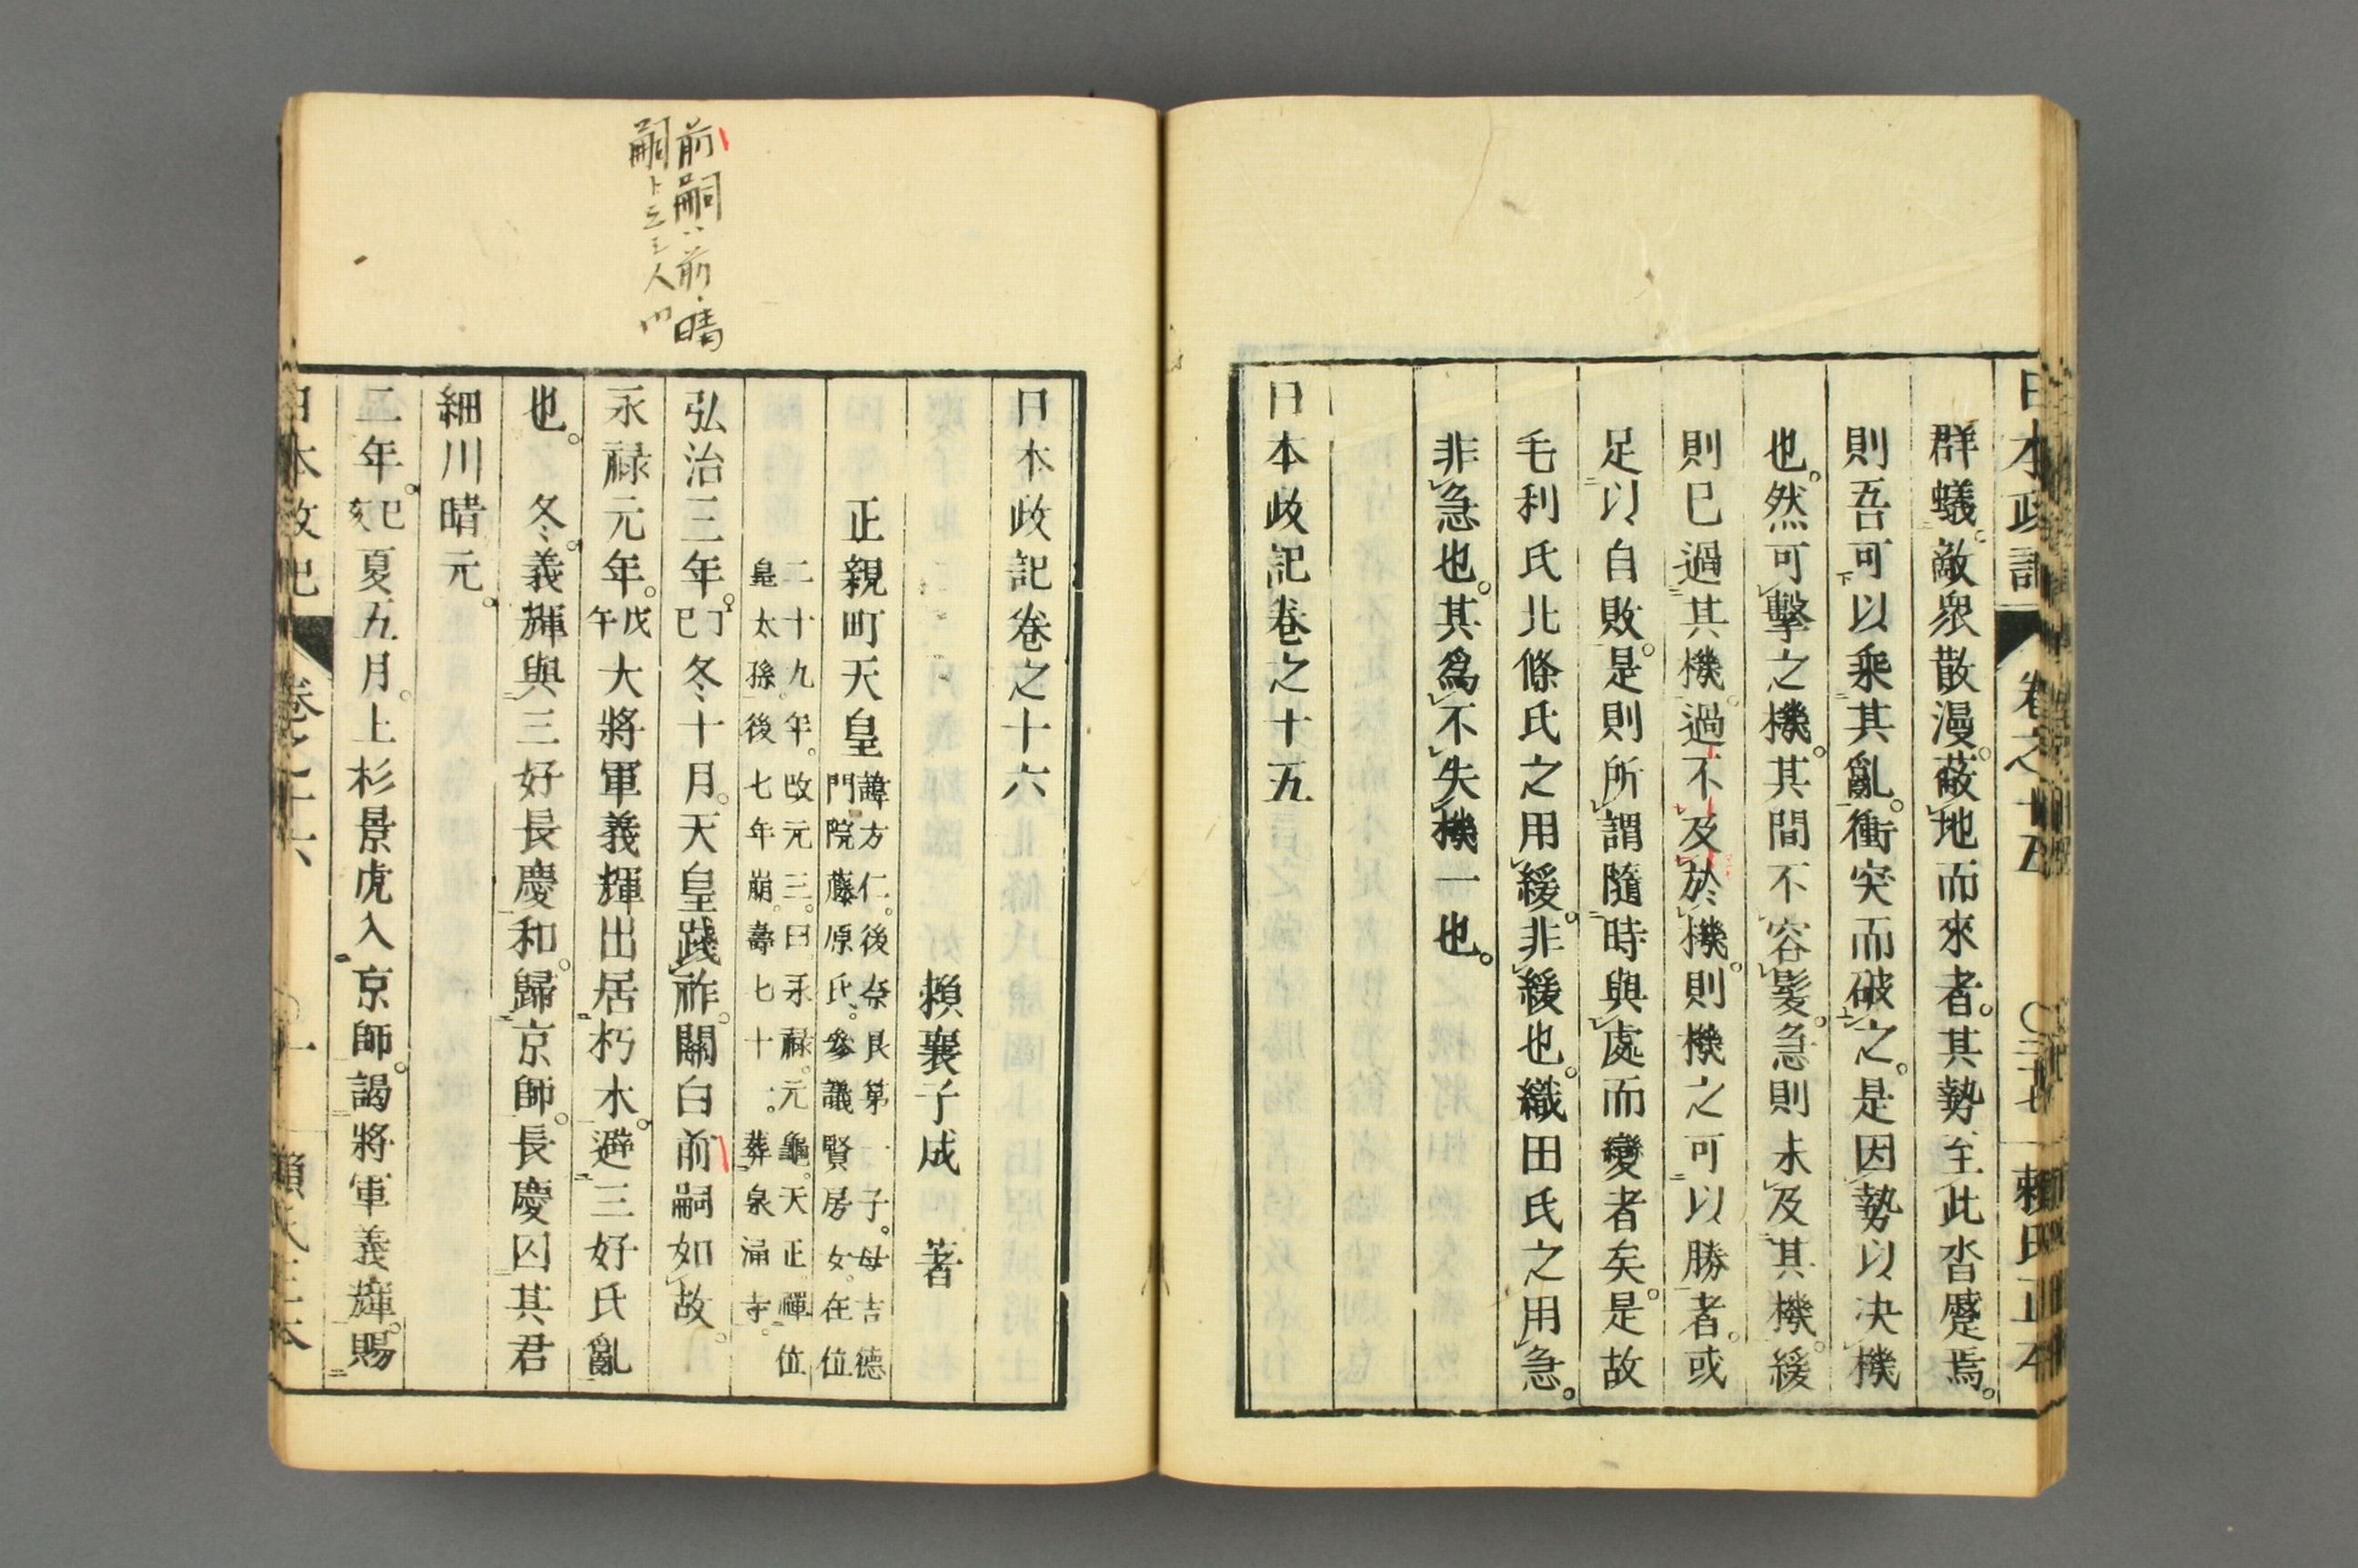 群蟻。敵衆散漫。蔽地而來者。其勢至此沓蹙焉。
則吾可以乘其亂。衝突而破之。是因勢以決機
也。然可擊之機。其間不容髮。急則未及其機。緩
則已過其機。過不及於機。則機之可以勝者。或
足以自敗。是則所謂隨時與處而變者矣。是故
毛利氏北條氏之用緩。非緩也。織田氏之用急。
非急也。其爲不失機一也。
日本政記卷之十五
日本政記卷之十六
賴襄子成 著
正親町天皇
諱方仁。後奈良第一子。母吉德
門院藤原氏。參議賢房女。在位
二十九年。改元三。曰永祿。元龜。天正。禪位
皇太孫。後七年崩。壽七十一。葬泉涌寺。
弘治三年。丁巳冬十月。天皇踐祚。關白前嗣如故。
永祿元年。戊午大將軍義輝出居朽木。避三好氏亂
也。冬。義輝與三好長慶和。歸京師。長慶囚其君
細川晴元。
二年。己亥夏五月。上杉景虎入京師。謁將軍義輝。賜
日本政記 卷之十六
前嗣ハ前・晴
嗣ト云